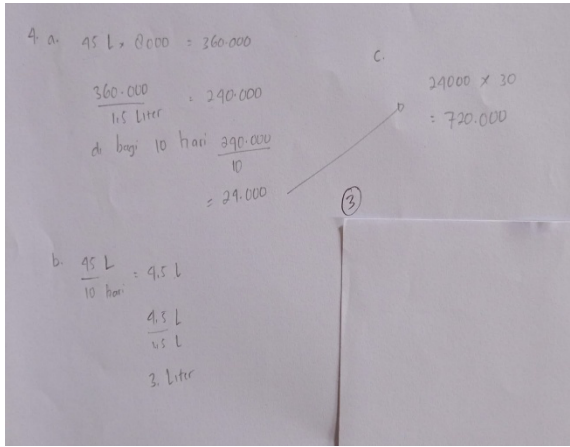 4. a. 45 L × 8000 = 360.000
360.000 / 1,5 Liter = 240.000
di bagi 10 hari 240.000 / 10
= 24.000
b. 45 L / 10 hari = 4,5 L
4,5 L / 1,5 L
3. Liter
c.
24000 × 30
= 720.000
3